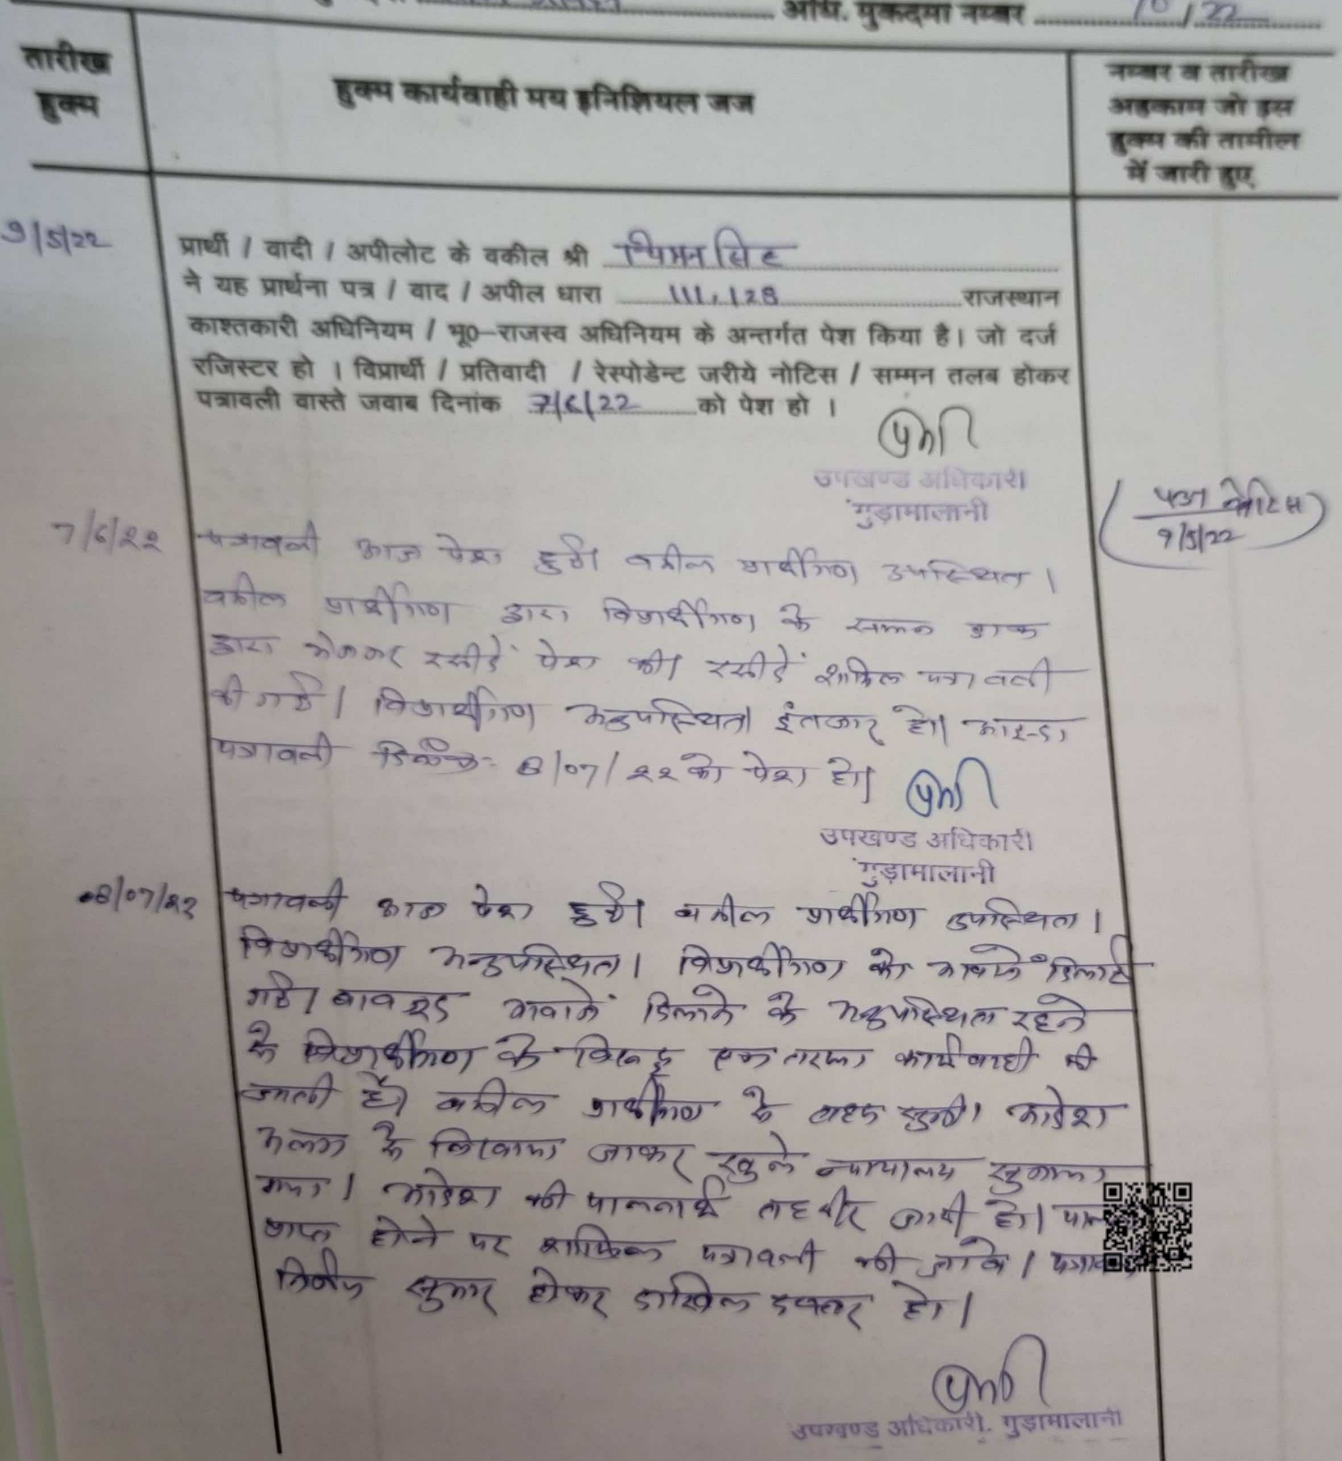 अधि. मुकदमा नम्बर 10/22
तारीख
हुक्म
हुक्म कार्यवाही मय इनिशियल जज
नम्बर व तारीख
अहकाम जो इस
हुक्म की तामील
में जारी हुए
9/5/22
प्रार्थी / वादी / अपीलोट के वकील श्री चिमन सिंह
ने यह प्रार्थना पत्र / वाद / अपील धारा 111, 128 राजस्थान
काश्तकारी अधिनियम / भू०-राजस्व अधिनियम के अन्तर्गत पेश किया है। जो दर्ज
रजिस्टर हो । विप्रार्थी / प्रतिवादी / रेस्पोडेन्ट जरीये नोटिस / सम्मन तलब होकर
पत्रावली वास्ते जवाब दिनांक 7/6/22 को पेश हो ।
उपखण्ड अधिकारी
गुड़ामालानी
नोटिस
9/5/22
7/6/22
पत्रावली आज पेश हुई। वकील प्रार्थीगण उपस्थित ।
वकील प्रार्थीगण द्वारा विप्रार्थीगण के सम्मन डाक
द्वारा भेजकर रसीदें पेश की। रसीदें शामिल पत्रावली
की गई। विप्रार्थीगण अनुपस्थित। इंतजार हो। आइन्दा
पत्रावली दिनांक 8/07/22 को पेश हो।
उपखण्ड अधिकारी
गुड़ामालानी
08/07/22
पत्रावली आज पेश हुई। वकील प्रार्थीगण उपस्थित।
विप्रार्थीगण अनुपस्थित। विप्रार्थीगण को आवाजें दिलाई
गई। बावजूद आवाजें दिलाने के अनुपस्थित रहने
से विप्रार्थीगण के विरुद्ध एक तरफा कार्यवाही की
जाती है। वकील प्रार्थीगण से बहस सुनी। आदेश
अलग से लिखाया जाकर खुले न्यायालय सुनाया
गया। आदेश की पालनार्थ तहरीर जारी हो।
प्राप्त होने पर शामिल पत्रावली की जावे।
निर्णय शुमार होकर दाखिल दफ्तर हो।
उपखण्ड अधिकारी, गुड़ामालानी